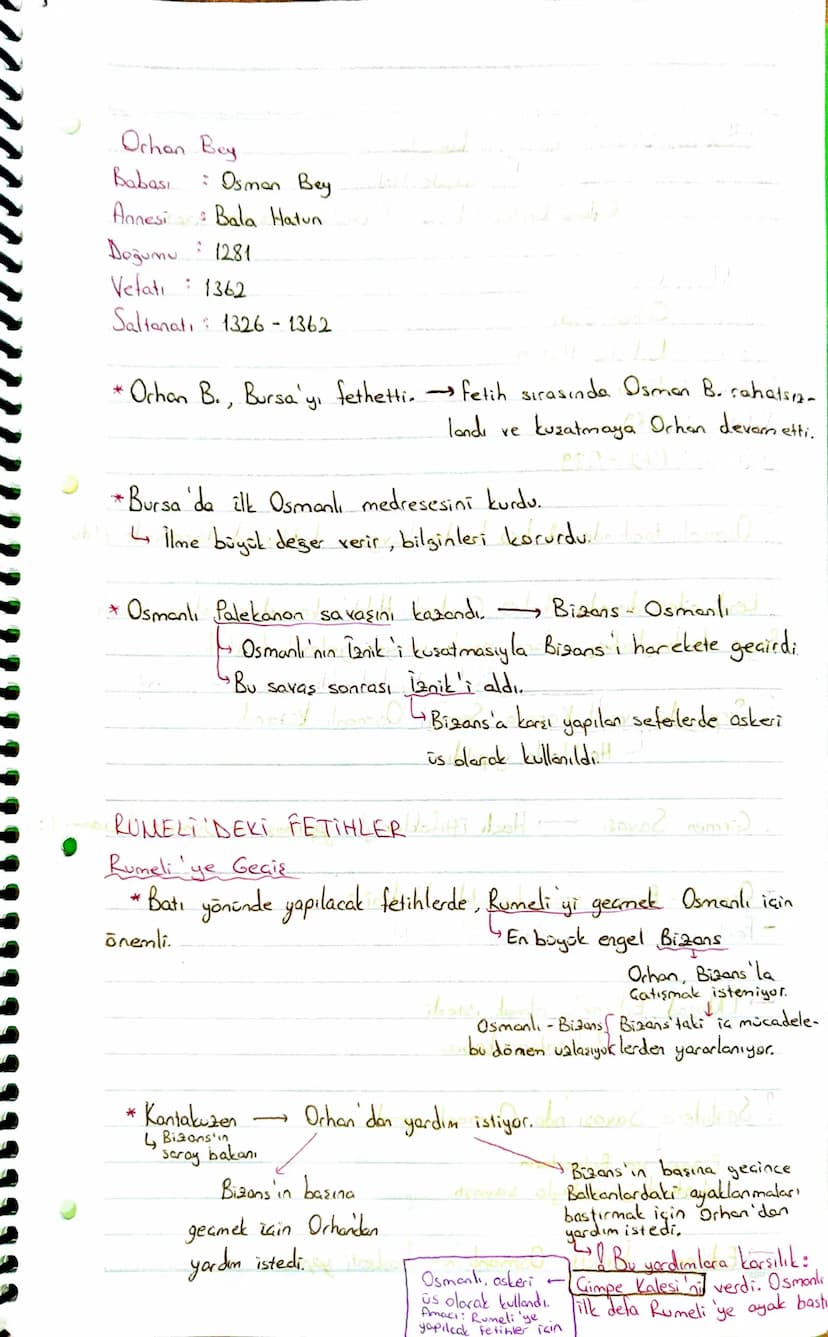 Orhan Bey
Babası : Osman Bey
Annesi : Bala Hatun
Doğumu : 1281
Vefatı : 1362
Saltanatı : 1326 - 1362
* Orhan B., Bursa'yı fethetti. → Fetih sırasında Osman B. rahatsız-
landı ve kuşatmaya Orhan devam etti.
* Bursa'da ilk Osmanlı medresesini kurdu.
↳ İlme büyük değer verir, bilginleri korurdu.
* Osmanlı Palekanon savaşını kazandı. → Bizans - Osmanlı
↳ Osmanlı'nın İznik'i kuşatmasıyla Bizans'ı harekete geçirdi
↳ Bu savaş sonrası İznik'i aldı.
↳ Bizans'a karşı yapılan seferlerde askeri
üs olarak kullanıldı.
RUMELİ'DEKİ FETİHLER
Rumeli'ye Geçiş
* Batı yönünde yapılacak fetihlerde, Rumeli'yi geçmek Osmanlı için
önemli.
↳ En büyük engel Bizans
Orhan, Bizans'la
Çatışmak isteniyor.
Osmanlı - Bizans
bu dönem uzlaşıyok
Bizans'taki iç mücadele-
lerden yararlanıyor.
* Kantakuzen → Orhan'dan yardım istiyor.
↳ Bizans'ın
saray bakanı
Bizans'ın başına
geçmek için Orhandan
yardım istedi.
Bizans'ın başına geçince
Balkanlardaki ayaklanmaları
bastırmak için Orhan'dan
yardım istedi.
↳ ! Bu yardımlara karşılık:
Çimpe Kalesi'ni verdi. Osmanlı
ilk defa Rumeli'ye ayak bastı
Osmanlı, askeri ←
üs olarak kullandı.
Amacı: Rumeli'ye
yapılcak fetihler için